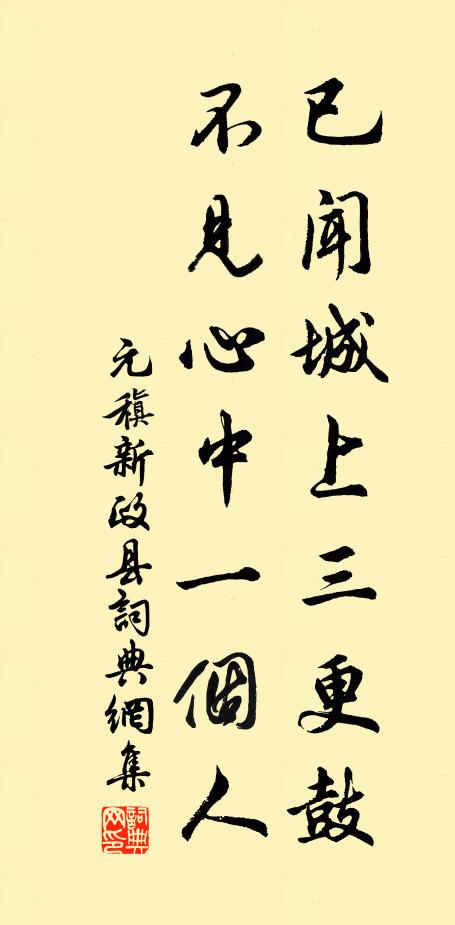 已闻城上三更鼓
不見心中一個人
元稹新政县詞典網集
詞典网印